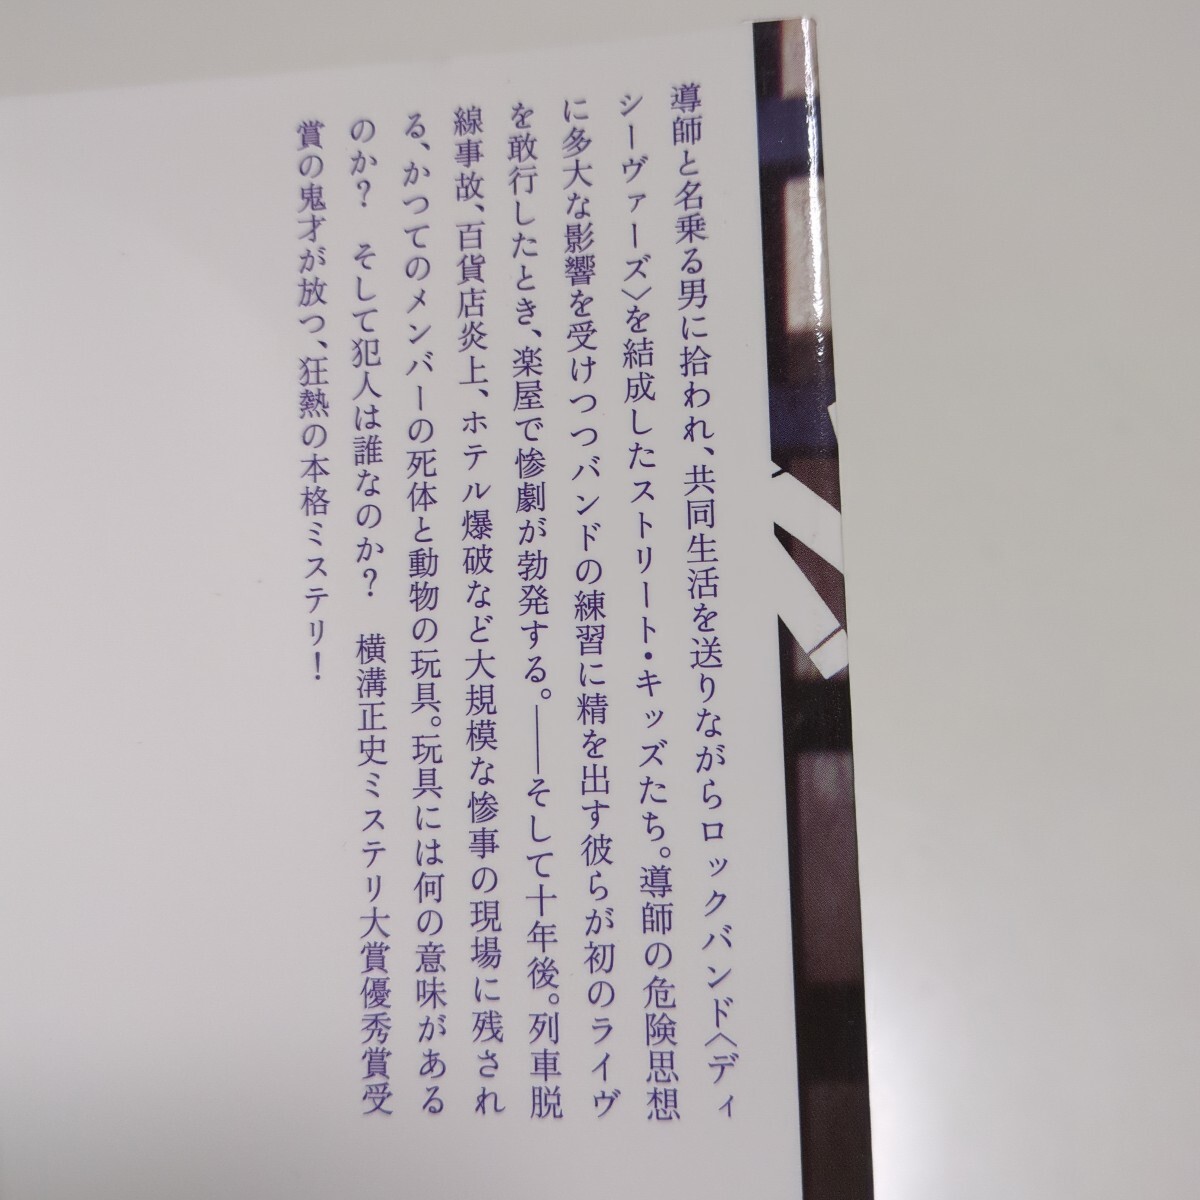 導師と名乗る男に拾われ、共同生活を送りながらロックバンド〈ディ
シーヴァーズ〉を結成したストリート・キッズたち。導師の危険思想
に多大な影響を受けつつバンドの練習に精を出す彼らが初のライヴ
を敢行したとき、楽屋で惨劇が勃発する。――そして十年後。列車脱
線事故、百貨店炎上、ホテル爆破など大規模な惨事の現場に残され
る、かつてのメンバーの死体と動物の玩具。玩具には何の意味がある
のか？　そして犯人は誰なのか？　横溝正史ミステリ大賞優秀賞受
賞の鬼才が放つ、狂熱の本格ミステリ！